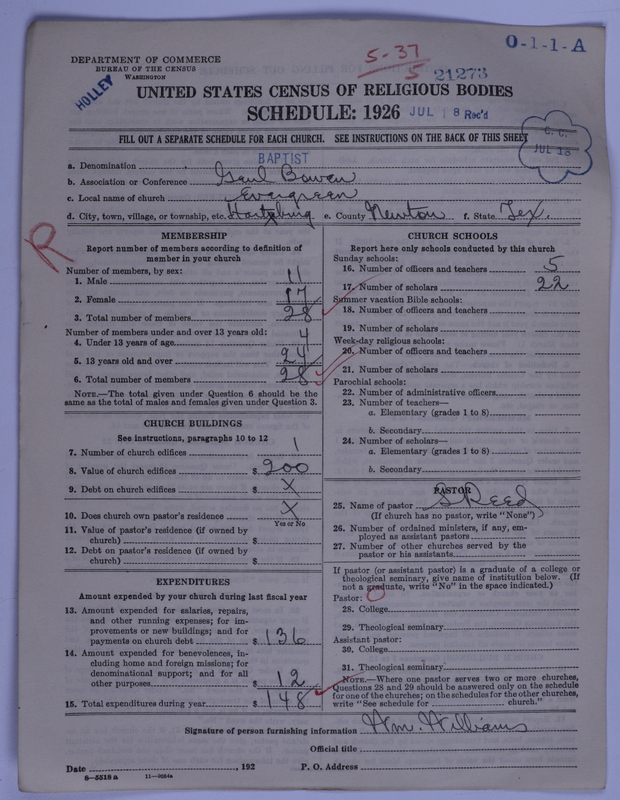 O-1-1-A
5-37
5
21273
DEPARTMENT OF COMMERCE
BUREAU OF THE CENSUS
WASHINGTON
HOLLEY
UNITED STATES CENSUS OF RELIGIOUS BODIES
SCHEDULE: 1926 JUL 18 Rec'd
FILL OUT A SEPARATE SCHEDULE FOR EACH CHURCH. SEE INSTRUCTIONS ON THE BACK OF THIS SHEET
C. C.
JUL 18
a. Denomination BAPTIST
b. Association or Conference Bowen
c. Local name of church Evergreen
d. City, town, village, or township, etc. Hartzburg e. County Newton f. State Tex.
R
MEMBERSHIP
Report number of members according to definition of
member in your church
Number of members, by sex:
1. Male 11
2. Female 17
3. Total number of members 28
Number of members under and over 13 years old:
4. Under 13 years of age 4
5. 13 years old and over 24
6. Total number of members 28
NOTE.—The total given under Question 6 should be
same as the total of males and females given under Question 3.
CHURCH BUILDINGS
See instructions, paragraphs 10 to 12
7. Number of church edifices 1
8. Value of church edifices $ 200
9. Debt on church edifices $ X
10. Does church own pastor's residence X
Yes or No
11. Value of pastor's residence (if owned by
church) $
12. Debt on pastor's residence (if owned by
church) $
EXPENDITURES
Amount expended by your church during last fiscal year
13. Amount expended for salaries, repairs,
and other running expenses; for im-
provements or new buildings; and for
payments on church debt $ 136
14. Amount expended for benevolences, in-
cluding home and foreign missions; for
denominational support; and for all
other purposes $ 12
15. Total expenditures during year $ 148
CHURCH SCHOOLS
Report here only schools conducted by this church
Sunday schools:
16. Number of officers and teachers 5
17. Number of scholars 22
Summer vacation Bible schools:
18. Number of officers and teachers
19. Number of scholars
Week-day religious schools:
20. Number of officers and teachers
21. Number of scholars
Parochial schools:
22. Number of administrative officers
23. Number of teachers—
a. Elementary (grades 1 to 8)
b. Secondary
24. Number of scholars—
a. Elementary (grades 1 to 8)
b. Secondary
PASTOR
25. Name of pastor S Reed
(If church has no pastor, write "None")
26. Number of ordained ministers, if any, em-
ployed as assistant pastors
27. Number of other churches served by the
pastor or his assistants
If pastor (or assistant pastor) is a graduate of a college or
theological seminary, give name of institution below. (If
not a graduate, write "No" in the space indicated.)
Pastor: O
28. College
29. Theological seminary
Assistant pastor:
30. College
31. Theological seminary
NOTE.—Where one pastor serves two or more churches,
Questions 28 and 29 should be answered only on the schedule
for one of the churches; on the schedules for the other churches,
write "See schedule for church."
Signature of person furnishing information Wm. Williams
Official title
Date , 192 P. O. Address
8-5518 a 11-9064a